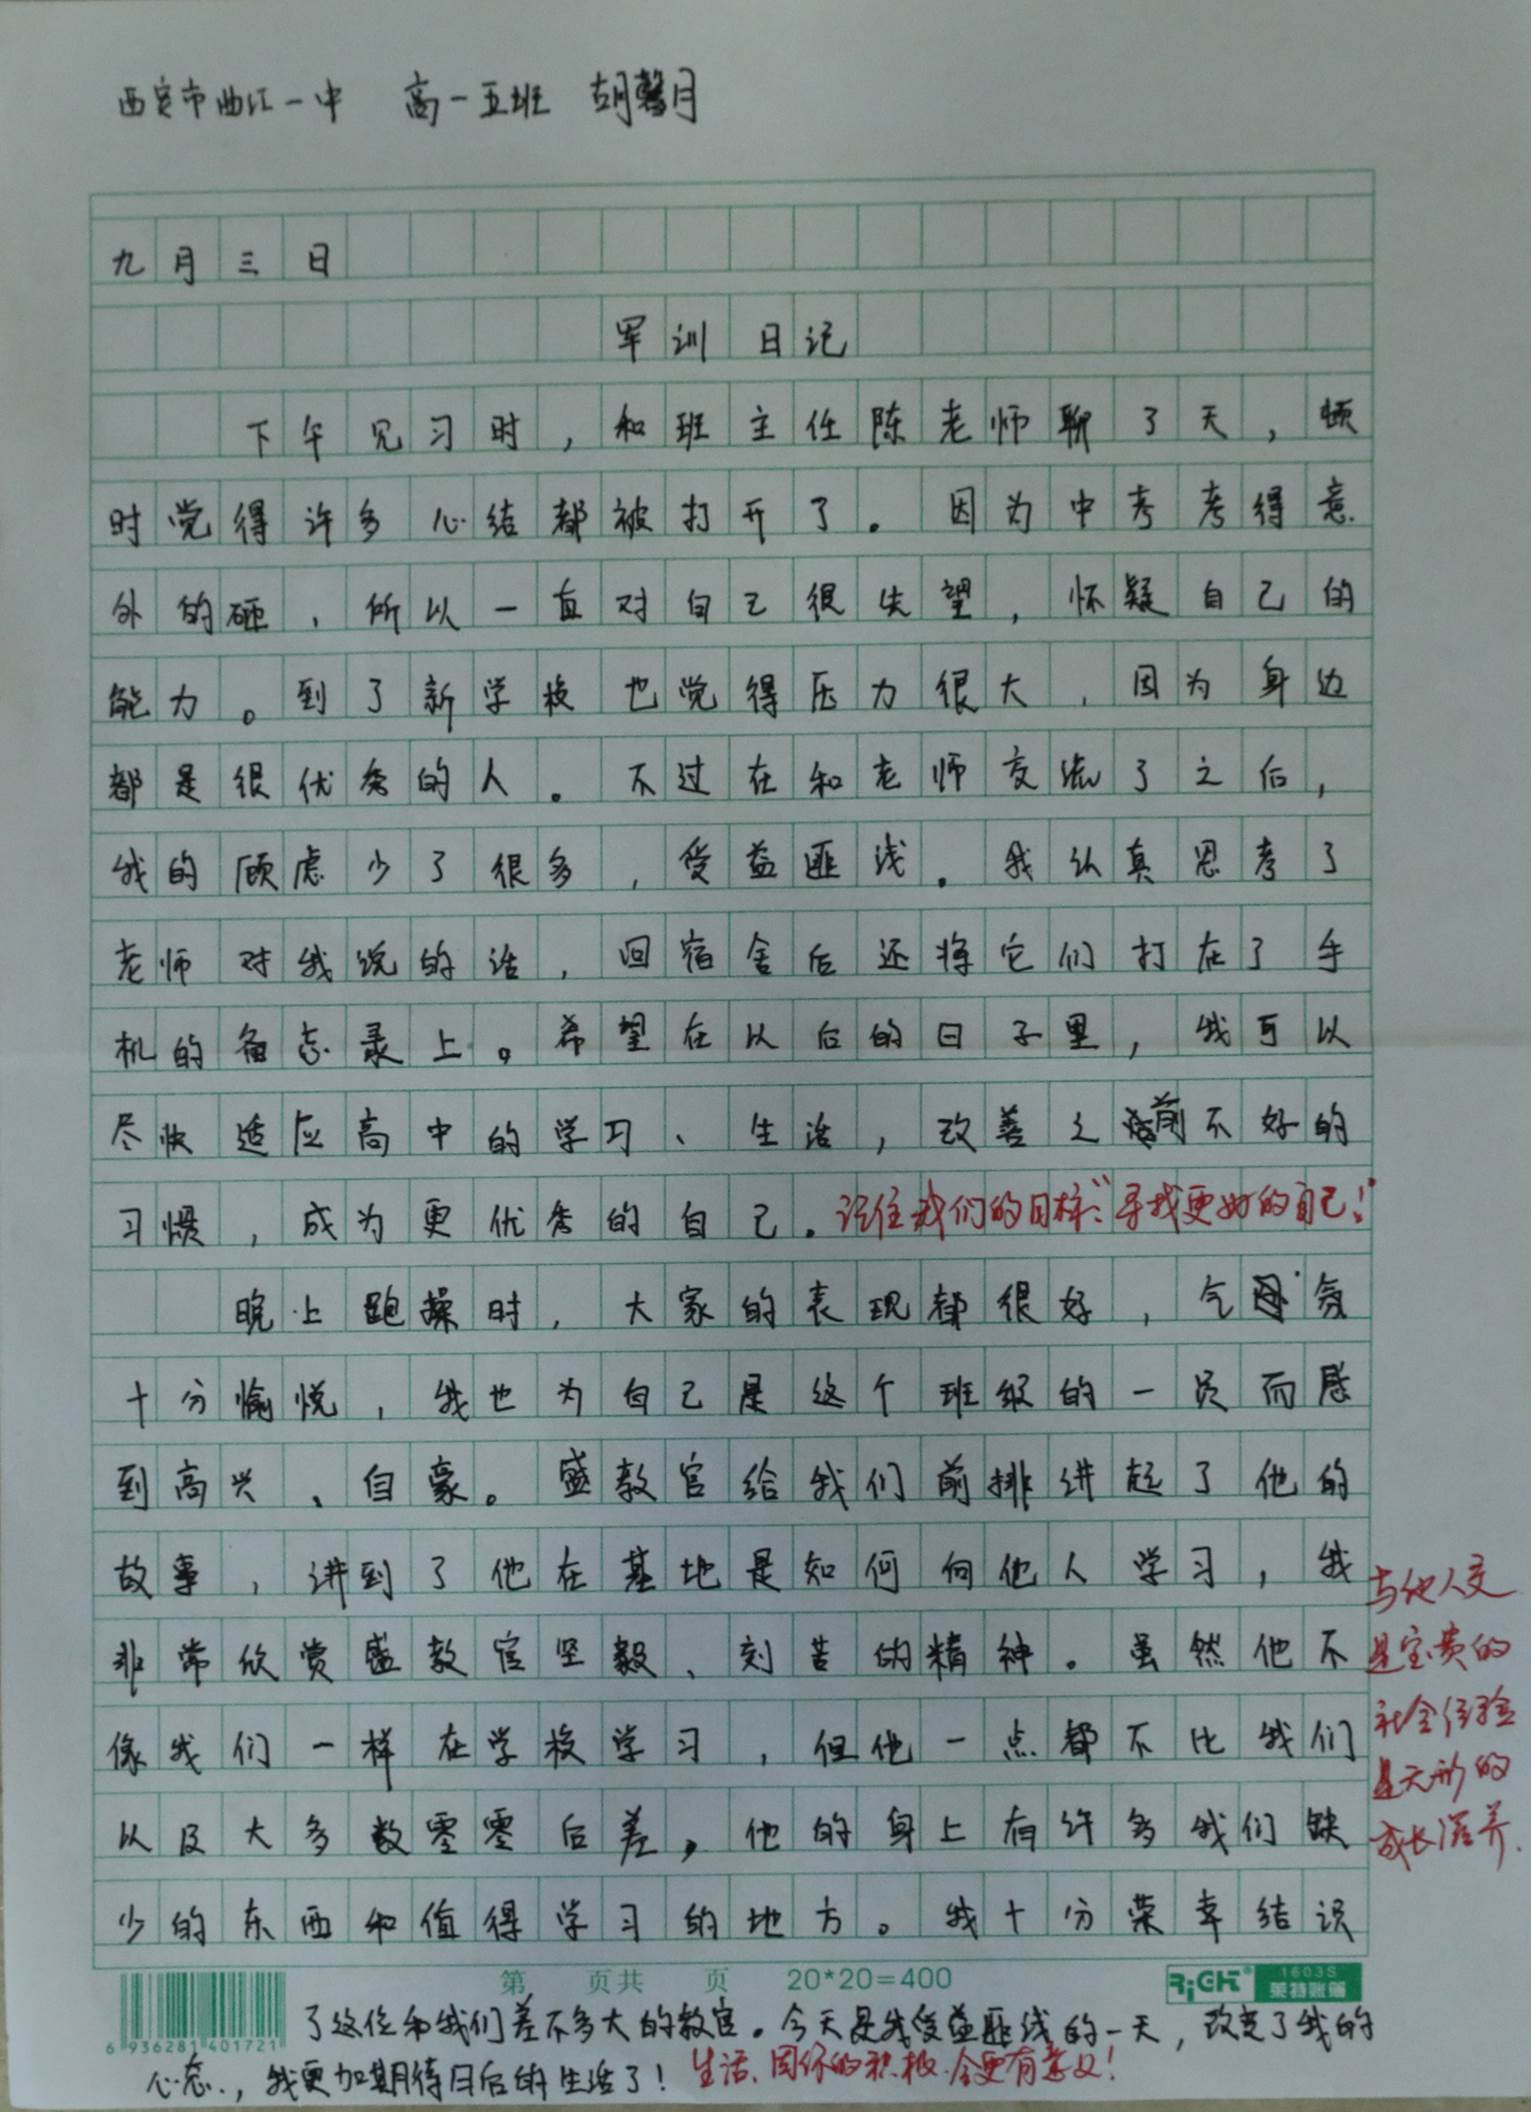 西安市曲江一中 高一五班 胡馨月
九月三日
军训日记
下午见习时，和班主任陈老师聊了天，顿
时觉得许多心结都被打开了。因为中考考得意
外的砸，所以一直对自己很失望，怀疑自己的
能力。到了新学校也觉得压力很大，因为身边
都是很优秀的人。不过在和老师交流了之后，
我的顾虑少了很多，受益匪浅。我认真思考了
老师对我说的话，回宿舍后还将它们打在了手
机的备忘录上。希望在以后的日子里，我可以
尽快适应高中的学习、生活，改善之前不好的
习惯，成为更优秀的自己。记住我们的目标:“寻找更好的自己!”
晚上跑操时，大家的表现都很好，气氛
十分愉悦，我也为自己是这个班级的一员而感
到高兴、自豪。盛教官给我们前排讲起了他的
故事，讲到了他在基地是如何向他人学习，我
非常欣赏盛教官坚毅、刻苦的精神。虽然他不
像我们一样在学校学习，但他一点都不比我们
以及大多数零零后差，他的身上有许多我们缺
少的东西和值得学习的地方。我十分荣幸结识
与他人交
是宝贵的
社会经验
是无形的
成长滋养.
第 页共 页 20*20=400
RiGHT® 1603S 莱特账簿
6 936281 401721
了这位和我们差不多大的教官。今天是我受益匪浅的一天，改变了我的
心态.，我更加期待日后的生活了! 生活、因你的积极、会更有意义!